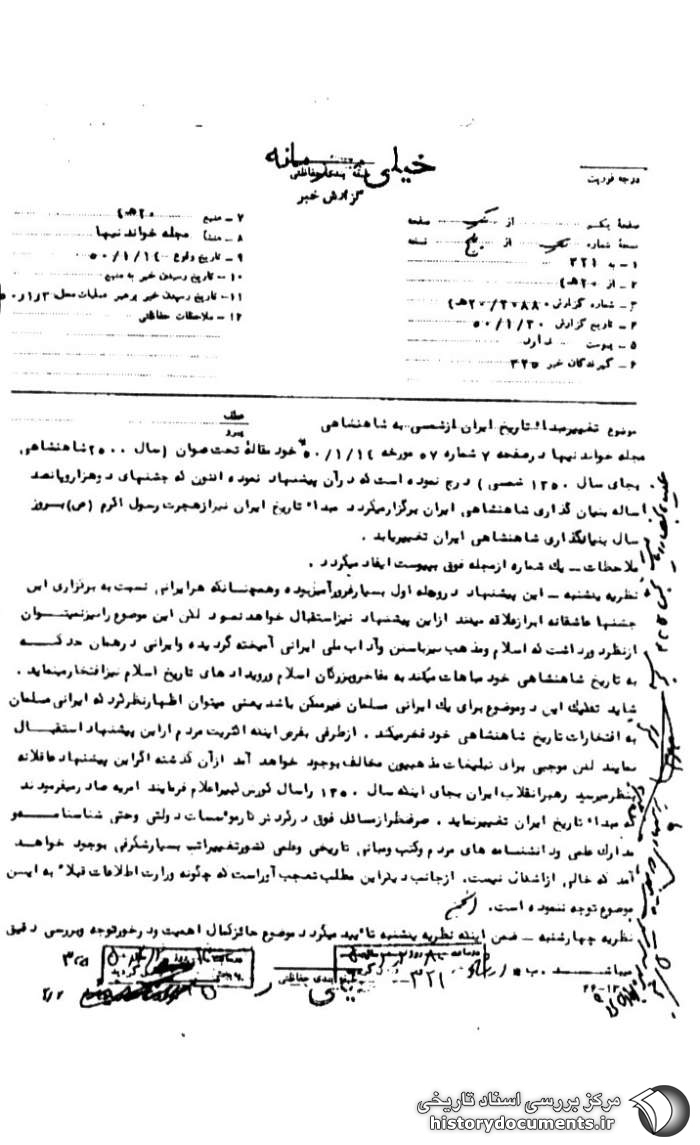 خیلی محرمانه
طبقه بندی حفاظتی
گزارش خبر
درجه فوریت
صفحه یکم از یک صفحه
نسخه شماره یک از پنج نسخه
۱ – به ۳۲۱
۲ – از ۲۰ه‍
۳ – شماره گزارش ۲۰/۳۰۸۸۰ه‍
۴ – تاریخ گزارش ۵۰/۱/۳۰
۵ – پیوست دارد
۶ – گیرندگان خبر ۳۲۵
۷ – منبع
۸ – منشأ مجله خواندنیها
۹ – تاریخ وقوع ۵۰/۱/۱۴
۱۰ – تاریخ رسیدن خبر به منبع
۱۱ – تاریخ رسیدن خبر برهبر عملیات محل
۱۲ – ملاحظات حفاظتی
موضوع تغییرمبداء تاریخ ایران ازشمسی به شاهنشاهی
عطف
پیرو
مجله خواندنیها درصفحه ۷ شماره ۵۷ مورخه ۵۰/۱/۱۴ خود مقاله تحت عنوان (سال ۲۵۰۰ شاهنشاهی
بجای سال ۱۳۵۰ شمسی) درج نموده است که درآن پیشنهاد نموده اکنون که جشنهای دوهزاروپانصد
ساله بنیان گذاری شاهنشاهی ایران برگزارمیگردد مبداء تاریخ ایران نیزازهجرت رسول اکرم (ص) بروز
سال بنیانگذاری شاهنشاهی ایران تغییریابد.
ملاحظات – یک شماره ازمجله فوق بپیوست ایفاد میگردد.
نظریه پنشنبه – این پیشنهاد دروهله اول بسیارغرورآمیزبوده وهمچنانکه هرایرانی نسبت به برگزاری این
جشنها عاشقانه ابرازعلاقه میکند ازاین پیشنهاد نیزاستقبال خواهدنمود لکن این موضوع رانیزنمیتوان
ازنظردورداشت که اسلام ومذهب نیزباسنن وآداب ملی ایرانی آمیخته گردیده وایرانی درهمان حد که
به تاریخ شاهنشاهی خود مباهات میکند به مفاخروبزرگان اسلام ورویدادهای تاریخ اسلام نیزافتخارمینماید.
شاید تفکیک این دوموضوع برای یک ایرانی مسلمان غیرممکن باشد یعنی میتوان اظهارنظرکرد که ایرانی مسلمان
به افتخارات تاریخ شاهنشاهی خود فخرمیکند. ازطرفی بفرض اینکه اکثریت مردم ازاین پیشنهاد استقبال
نمایند لکن موجبی برای تبلیغات مذهبیون مخالف بوجود خواهد آمد ازآن گذشته اگراین پیشنهاد عاقلانه
بنظرمیرسید رهبرانقلاب ایران بجای اینکه سال ۱۳۵۰ راسال کورش کبیراعلام فرمایند امریه صادرمیفرمودند
مبداء تاریخ ایران تغییرنماید. صرفنظرازمسائل فوق دررکردنر تارموسسات دولتی وحتی شناسنامه و
مدارک علمی ودانشنامه های مردم وکتب ومبانی تاریخی وعلمی کشورتغییراتب بسیارشگرفی بوجود خواهد
آمد که خالی ازاشکال نیست. ازجانب دیگراین مطلب تعجب آوراست که چگونه وزارت اطلاعات قبلاً به این
موضوع توجه ننموده است.
نظریه چهارشنبه – ضمن اینکه نظریه پنشنبه تائید میگردد موضوع حائزکمال اهمیت ودرخورتوجه وبررسی دقیق
میباشد.
۳۲۱
طبقه بندی حفاظتی
مرکز بررسی اسناد تاریخی
historydocuments.ir